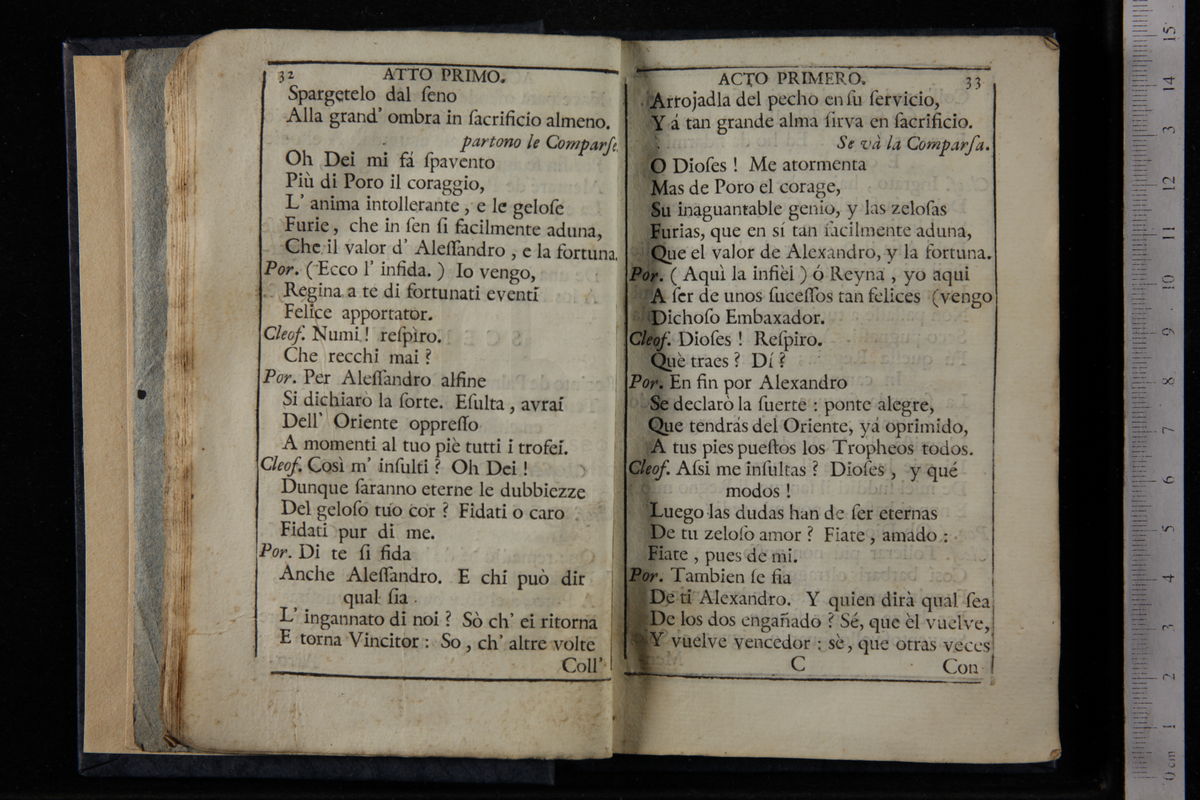 32 ATTO PRIMO.
Spargetelo dal ſeno
Alla grand' ombra in ſacrificio almeno.
partono le Comparſe.
Oh Dei mi fá ſpavento
Più di Poro il coraggio,
L' anima intollerante, e le geloſe
Furie, che in ſen ſi facilmente aduna,
Che il valor d' Aleſſandro, e la fortuna.
Por. (Ecco l' infida.) Io vengo,
Regina a te di fortunati eventi
Felice apportator.
Cleof. Numi! reſpiro.
Che recchi mai?
Por. Per Aleſſandro alfine
Si dichiarò la ſorte. Eſulta, avrai
Dell' Oriente oppreſſo
A momenti al tuo piè tutti i trofei.
Cleof. Così m' inſulti? Oh Dei!
Dunque ſaranno eterne le dubbiezze
Del geloſo tuo cor? Fidati o caro
Fidati pur di me.
Por. Di te ſi fida
Anche Aleſſandro. E chi può dir
qual ſia
L' ingannato di noi? Sò ch' ei ritorna
E torna Vincitor: So, ch' altre volte
Coll'
ACTO PRIMERO. 33
Arrojadla del pecho en ſu ſervicio,
Y á tan grande alma ſirva en ſacrificio.
Se và la Comparſa.
O Dioſes! Me atormenta
Mas de Poro el corage,
Su inaguantable genio, y las zeloſas
Furias, que en sí tan facilmente aduna,
Que el valor de Alexandro, y la fortuna.
Por. (Aquì la infièl) ó Reyna, yo aqui
A ſer de unos ſuceſſos tan felices (vengo
Dichoſo Embaxador.
Cleof. Dioſes! Reſpiro.
Què traes? Dí?
Por. En fin por Alexandro
Se declarò la ſuerte: ponte alegre,
Que tendrás del Oriente, yá oprimido,
A tus pies pueſtos los Tropheos todos.
Cleof. Aſsi me inſultas? Dioſes, y qué
modos!
Luego las dudas han de ſer eternas
De tu zeloſo amor? Fiate, amado:
Fiate, pues de mi.
Por. Tambien ſe fia
De ti Alexandro. Y quien dirà qual ſea
De los dos engañado? Sé, que èl vuelve,
Y vuelve vencedor: sè, que otras veces
C Con